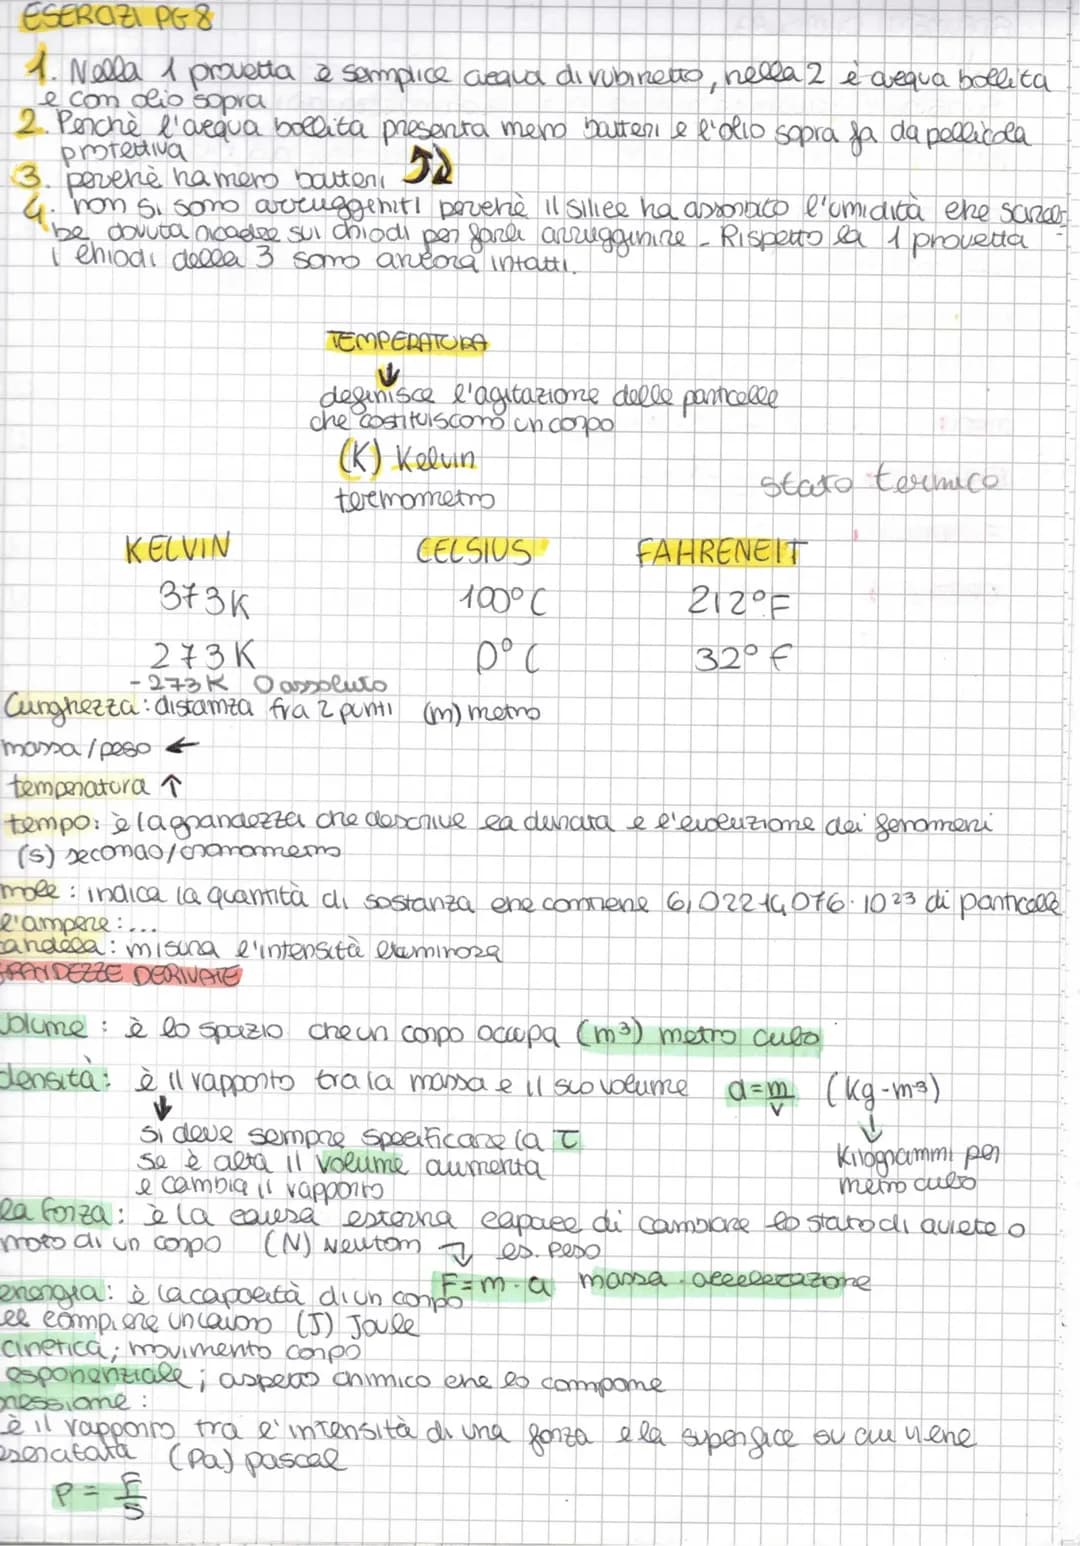 ESERCIZI PG 8
1. Nella 1 provetta è semplice acqua di rubinetto, nella 2 è acqua bollita
e con olio sopra
2. Perchè l'acqua bollita presenta meno batteri e l'olio sopra fa da pellicola
protettiva
3. perchè ha meno batteri
4. non si sono arrugginiti perchè il silice ha assorbito l'umidità che sareb-
be dovuta accadere sui chiodi per farli arrugginire - Rispetto la 1 provetta
i chiodi della 3 sono ancora intatti.
TEMPERATURA
definisce l'agitazione delle particelle
che costituiscono un corpo
(K) Kelvin
termometro
stato termico
KELVIN CELSIUS FAHRENEIT
373K 100°C 212°F
273K 0°C 32°F
-273K 0 assoluto
Lunghezza: distanza fra 2 punti (m) metro
massa/peso ←
temperatura ↑
tempo: è la grandezza che descrive la durata e l'evoluzione dei fenomeni
(s) secondo/cronometro
mole: indica la quantità di sostanza che contiene 6,02214076·10²³ di particelle
l'ampere:...
candela: misura l'intensità luminosa
GRANDEZZE DERIVATE
Volume: è lo spazio che un corpo occupa (m³) metro cubo
densità: è il rapporto tra la massa e il suo volume d=m/V (kg-m³)
si deve sempre specificare la T
se è alta il volume aumenta
e cambia il rapporto
Kilogrammi per
metro cubo
la forza: è la causa esterna capace di cambiare lo stato di quiete o
moto di un corpo (N) Newton es. peso
F=m·a massa·accelerazione
energia: è la capacità di un corpo
di compiere un lavoro (J) Joule
cinetica; movimento corpo
esponenziale; aspetto chimico che lo compone
pressione:
è il rapporto tra l'intensità di una forza e la superficie su cui viene
esercitata (Pa) pascal
P = F/S